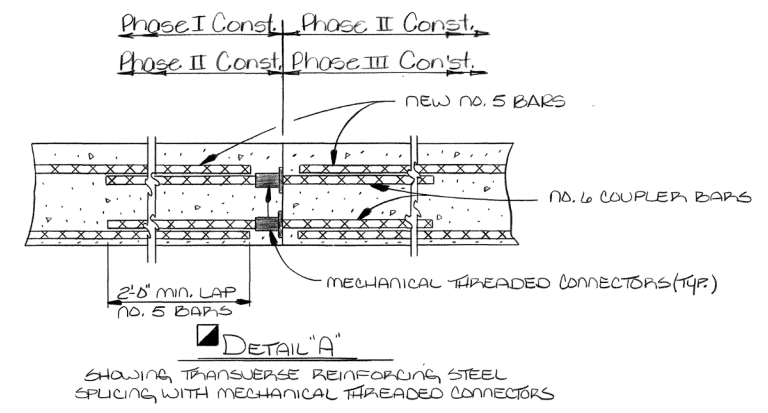 Phase I Const. Phase II Const.
Phase II Const. Phase III Con'st.
NEW NO. 5 BARS
NO. 6 COUPLER BARS
MECHANICAL THREADED CONNECTORS (TYP.)
2'-0" MIN. LAP
NO. 5 BARS
DETAIL "A"
SHOWING TRANSVERSE REINFORCING STEEL
SPLICING WITH MECHANICAL THREADED CONNECTORS